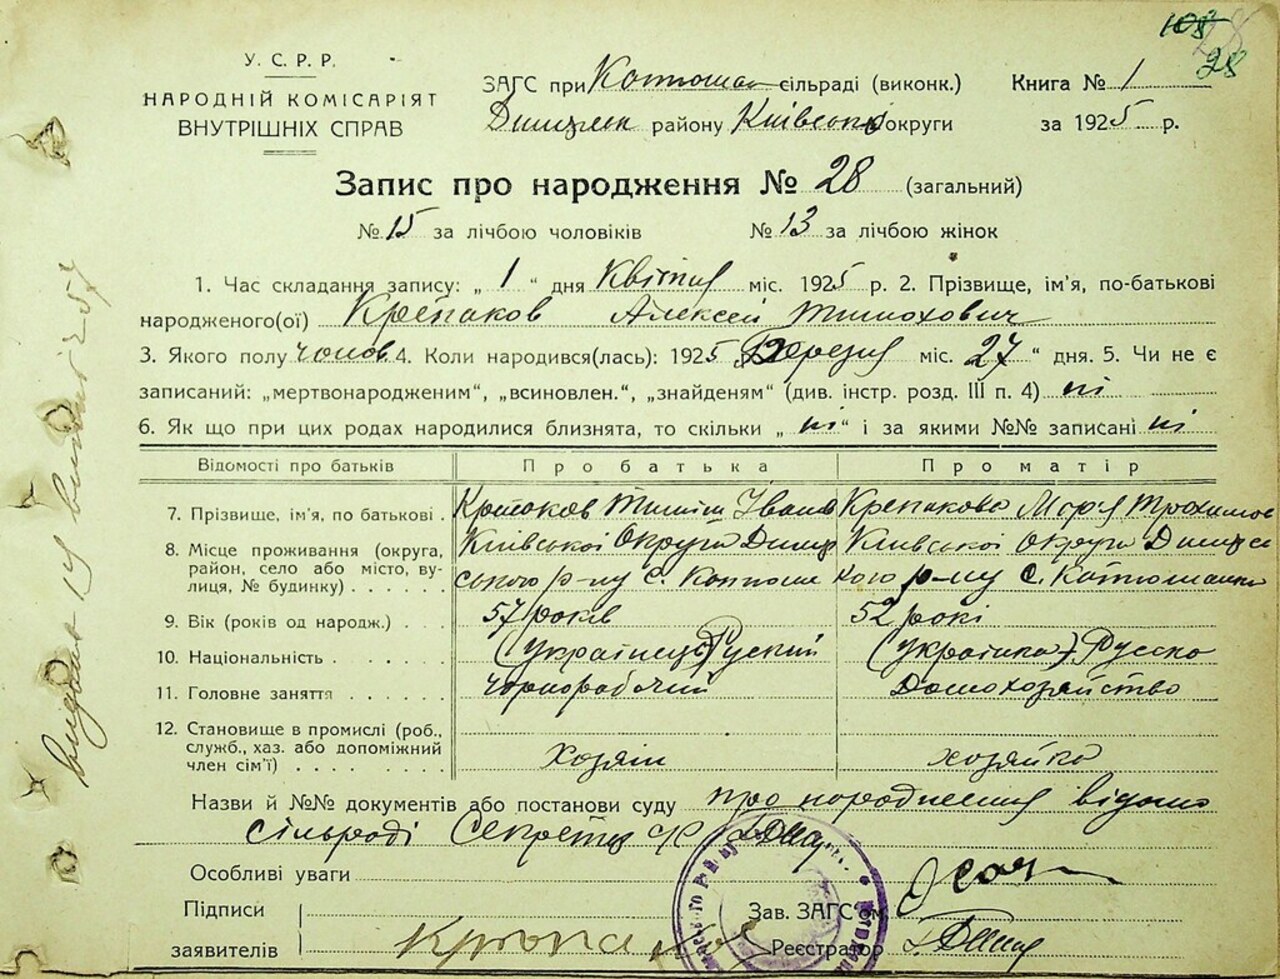 108
28
28
У. С. Р. Р.
НАРОДНІЙ КОМІСАРІЯТ
ВНУТРІШНІХ СПРАВ
ЗАГС при Котюшан сільраді (виконк.) Книга № 1
Димерськ району Київської округи за 1925 р.
Запис про народження № 28 (загальний)
№ 15 за лічбою чоловіків № 13 за лічбою жінок
1. Час складання запису: „ 1 “ дня Квітня міс. 1925 р. 2. Прізвище, ім'я, по-батькові
народженого(ої) Крепаков Алексей Тимохович
3. Якого полу чолов 4. Коли народився(лась): 1925 Березня міс. 27 “ дня. 5. Чи не є
записаний: „мертвонародженим“, „всиновлен.“, „знайденям“ (див. інстр. розд. III п. 4) ні
6. Як що при цих родах народилися близнята, то скільки „ ні “ і за якими №№ записані ні
Відомості про батьків Про батька Про матір
7. Прізвище, ім'я, по батькові . Крепаков Тиміш Іванов Крепакова Мар'я Трохимов
8. Місце проживання (округа, Київської Округи Димер Київської Округи Димерсь
район, село або місто, ву-
лиця, № будинку) . . . . . . ського р-ну С. Котюшан кого р-ну С. Котюшанка
9. Вік (років од народж.) . . . 57 років 52 рокі
10. Національність . . . . . (Українець) Руский (Українка) Русска
11. Головне заняття . . . . . . Чорнорабочий Домохозяйство
12. Становище в промислі (роб.,
служб., хаз. або допоміжний
член сім'ї) . . . . . . . . хозяін хозяйка
Назви й №№ документів або постанови суду про народження відомо
сільраді Секретар
Особливі уваги
Підписи
заявителів Крепаков
Зав. ЗАГС'ом
Реєстратор